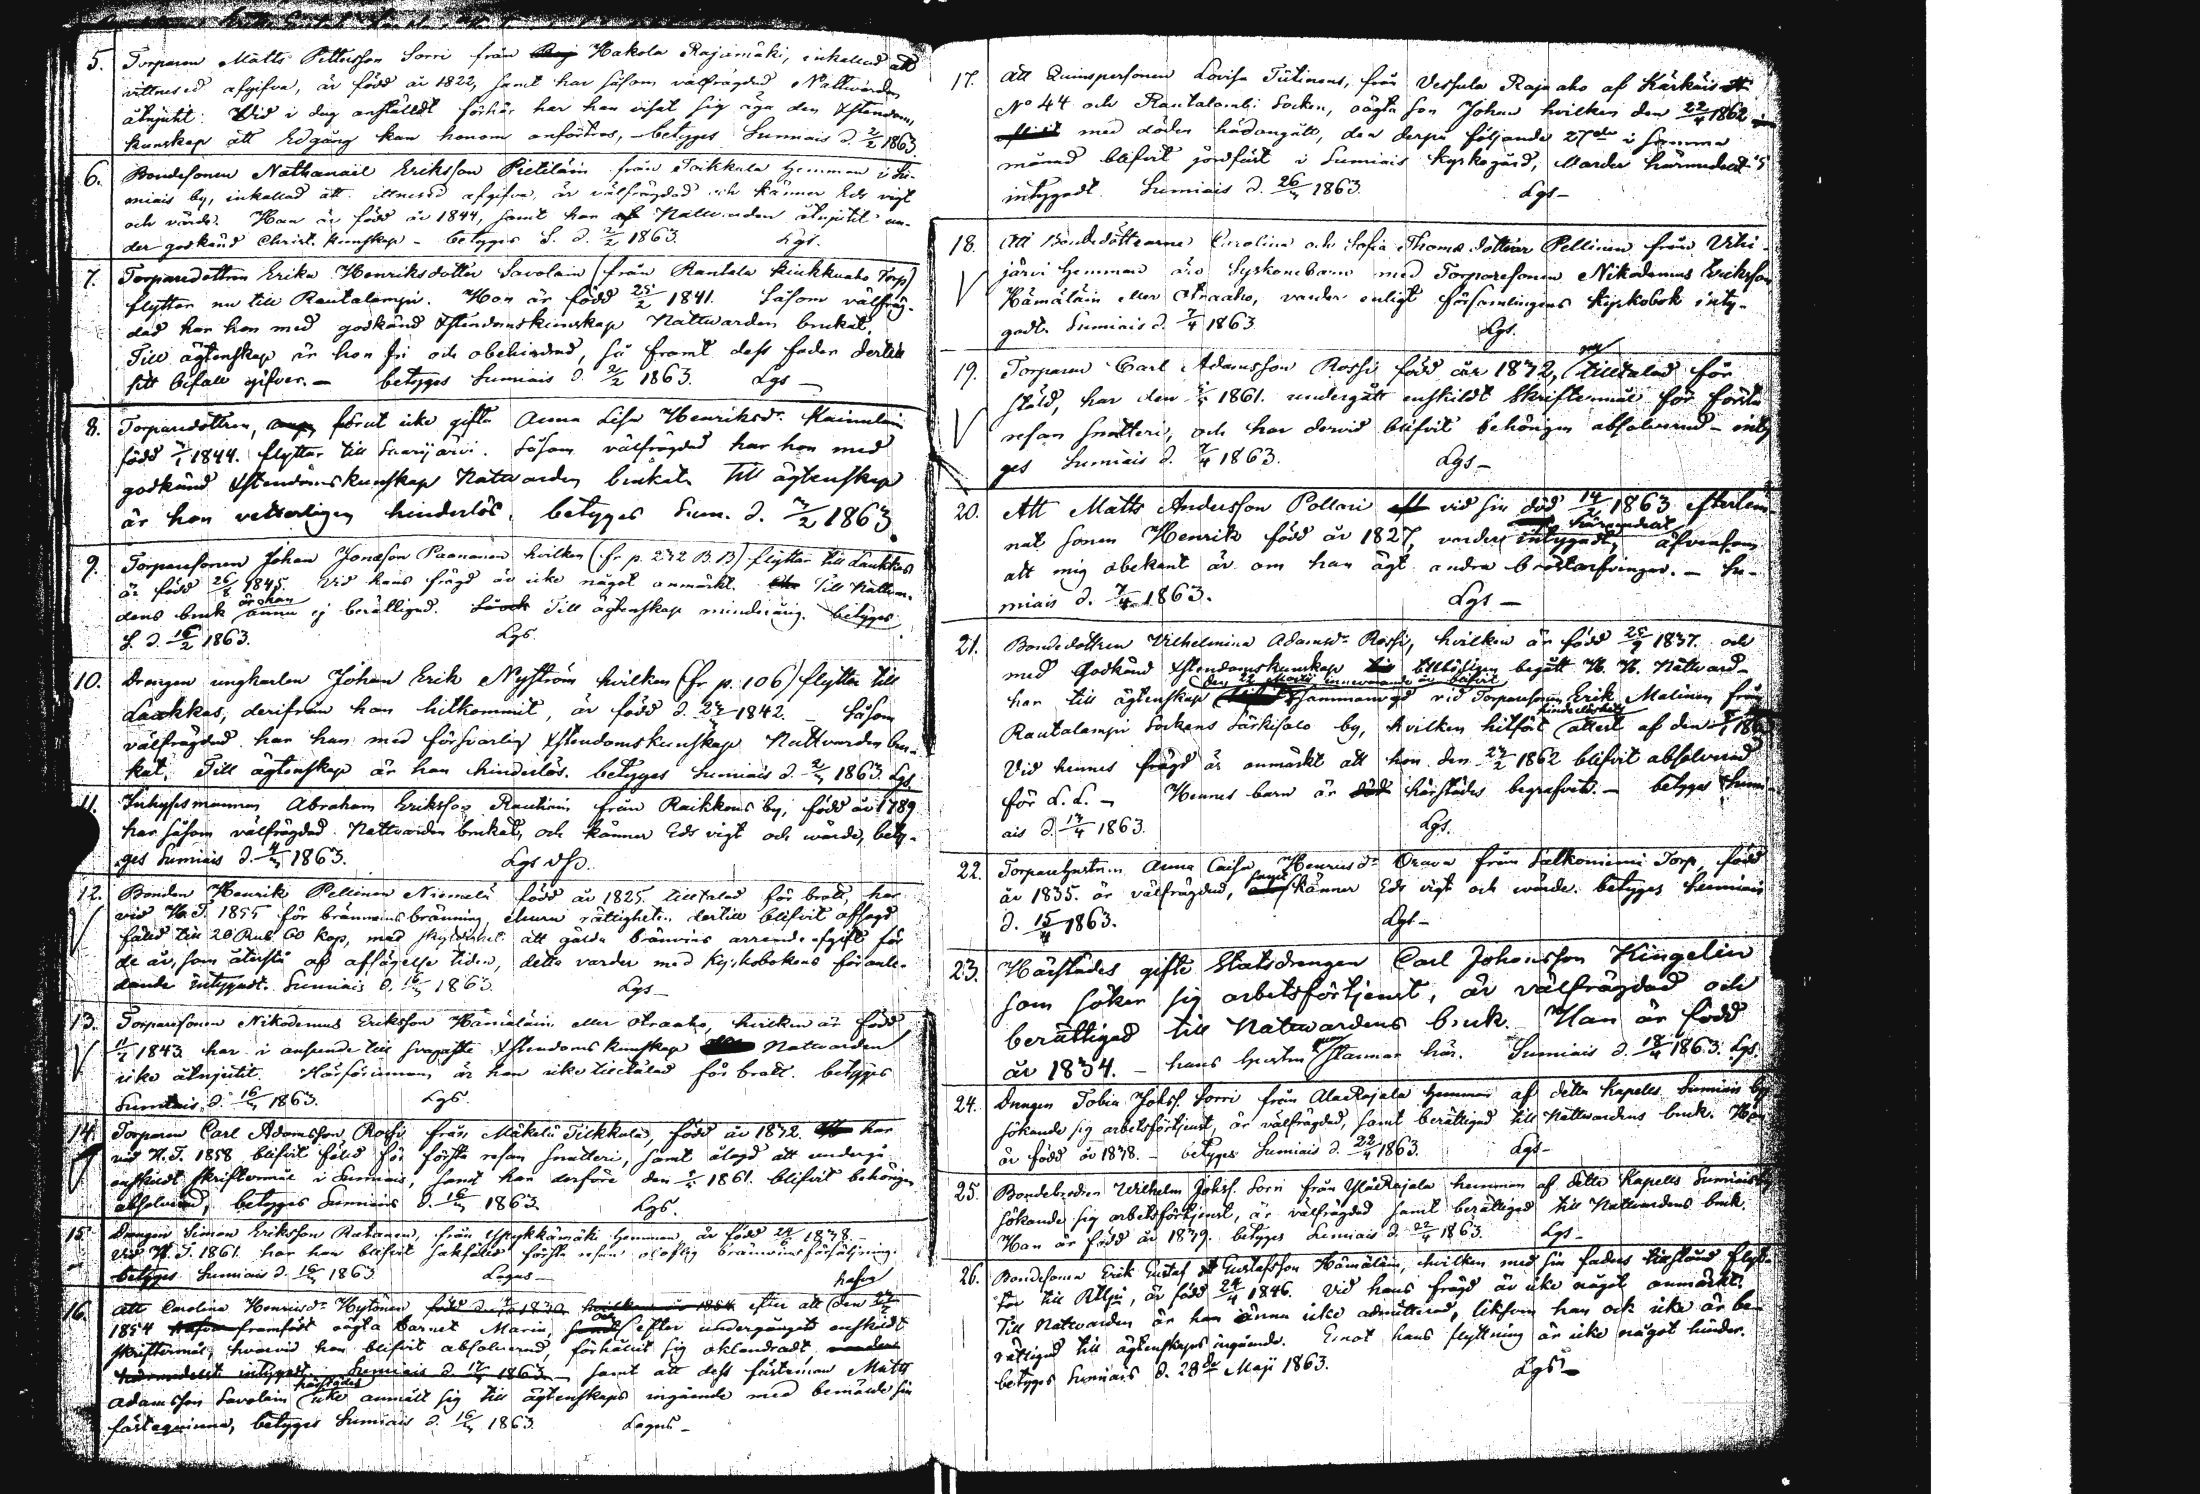 5. Torparen Matts Pettersson Sorri från Hakola Rajamäki, inkallad att
vittnesed afgifva, är född år 1822, samt har såsom välfrägdad Nattvarden
åtnjutit. Vid i dag anstäldt förhör har han visat sig äga den Xstendoms
kunskap att Edgång kan honom anförtros, betyges Sumiais d. 2/2 1863
6. Bondesonen Nathanaël Eriksson Pietiläin från Toikkala Hemman i Su-
miais by, inkallad att vittnesed afgifva, är välfrägdad och känner Eds vigt
och värde. Han är född år 1844, samt har af Nattvarden åtnjutit un-
der godkänd Christ. kunskap - betyges S. d. 2/2 1863. Lgs.
7. Torparedottren Erika Henriksdotter Savolain (från Rantala Kiukkuaho Torp)
flyttar nu till Rautalampi. Hon är född 25/2 1841. Såsom välfräg-
dad har hon med godkänd Xstendomskunskap Nattvarden brukat.
Till ägtenskap är hon fri och obehindrad, så framt dess fader dertill
sitt bifall gifver. - betyges Sumiais d. 2/2 1863. Lgs -
8. Torparedottren, förut icke gifta Anna Lisa Henriksdr Kainulain
född 1844. flyttar till Saarijärvi. Såsom välfrägdad har hon med
godkänd Xstendomskunskap Nattvarden brukat. Till ägtenskap
är hon veterligen hinderlös. betyges Sum. d. 1863
9. Torparesonen Johan Jonasson Paananen hvilken (fr p. 272 B.B) flyttar till Laukkas
är född 26/8 1845. Vid hans frägd är icke något anmärkt. Till Nattvar-
dens bruk är han ännu ej berättigad. Till ägtenskap minderårig. betyges
S. d. 16/2 1863. Lgs.
10. Drengen ungkarlen Johan Erik Nyström hvilken (fr p. 106) flyttar till
Laukkas, derifrån han hitkommit, är född d. 1842. - Såsom
välfrägdad har han med försvarlig Xstendomskunskap Nattvarden bru-
kat. Till ägtenskap är han hinderlös. betyges Sumiais d. 2/3 1863. Lgs.
11. Inhysesmannen Abraham Eriksson Rautiain från Raikkaus by, född år 1789
har såsom välfrägdad Nattvarden brukat, och känner Eds vigt och wärde, bety-
ges Sumiais d. 4/3 1863. Lgs
12. Bonden Henrik Pellinen Niemelä född år 1825. tilltalad för brott, har
vid H.T. 1855 för bränvinsbränning, utan rättighet dertill blifvit afsagd
fälld till 20 Rub. 60 kop, med skyldighet att gälda bränvins arrende afgift för
de år, som återstå af afsägelse tiden, detta varder med Kyrkobokens föranle-
dande intygadt. Sumiais d. 16/3 1863. Lgs -
13. Torparesonen Nikodemus Eriksson Hämäläin eller Ahoaho, hvilken är född
1843. har i anseende till svagaste Xstendomskunskap Nattvarden
icke åtnjutit. Härförinnan är han icke tilltalad för brott. betyges
Sumiais d. 16/3 1863. Lgs.
14. Torparen Carl Adamsson Rossi från Mäkelä Tikkala, född år 1832. har
vid H.T. 1858 blifvit fälld för första resan snatteri, samt ålagd att undergå
enskildt skriftermål i Sumiais, samt har derföre den 1861. blifvit behörigen
absolverad, betyges Sumiais d. 16/3 1863. Lgs.
15. Drengen Simon Eriksson Rahunen, från Hyykkämäki Hemman, är född 1838. -
Vid H.T. 1861 har han blifvit sakfälld första resan olaflig bränvinsförsäljning.
betyges Sumiais d. 16/3 1863 Lagus -
16. Att Carolina Henriksdr Hytönen efter att hafva den
1854 framfödt oägta barnet Maria, och efter undergånget enskildt
skriftermål, hvarvid hon blifvit absolverad, förhållit sig oklandradt,
härmedelst intygadt. Sumiais d. 1863 - samt att dess fästeman Matts
Adamsson Savolain härstädes icke anmält sig till ägtenskaps ingående med bemälde sin
fästeqvinna, betyges Sumiais d. 16/3 1863. Lagus -
17. Att Qvinspersonen Lovisa Tiitinens, från Vessula Rajaaho af Kärkkäis
No 44 och Rautalambi Socken, oägta son Johan hvilken den 22/4 1862
med döden hädangått, den derpå följande 27de i samma
månad blifvit jordfäst i Sumiais Kyrkogård, warder härmedelst
intygadt. Sumiais d. 26/3 1863. Lgs -
18. Att Bondedöttrarne Carolina och Sofia Thomæ döttrar Pellinen från Vehi-
järvi Hemman äro Syskonebarn med Torparesonen Nikodemus Eriksson
Hämäläin eller Ahoaho, varder enligt församlingens kyrkobok inty-
gadt. Sumiais d. 7/4 1863. Lgs.
19. Torparen Carl Adamsson Rossi född år 1832, tilltalad för
stöld, har den 1861. undergått enskildt Skriftermål för första
resan snatteri, och har dervid blifvit behörigen absolverad - inty
ges Sumiais d. 7/4 1863. Lgs -
20. Att Matts Andersson Pollari vid sin död 14/2 1863 efterlem-
nat sonen Henrik född år 1827, varder härmedelst intygadt, äfvensom
att mig obekant är om han ägt andra bröstarfvingar. - Su-
miais d. 7/4 1863. Lgs -
21. Bondedottren Vilhelmina Adamsdr Rossi, hvilken är född 1837. och
med Godkänd Xstendomskunskap tillbörligen begått H. H. Nattvard -
har till ägtenskap den 22 Martii innevarande år blifvit sammanvigd vid Torparesonen Erik Malinen från
Rautalampi Sockens Särkisalo by, hvilken hitfört hinderlöshets attest af den
Vid hennes frägd är anmärkt att hon den 1862 blifvit absolverad
för L. L. - Hennes barn är härstädes begrafvet. - betyges Sumi-
ais d. 13/4 1863. Lgs.
22. Torparehustrun Anna Caisa Henriksdr Orava från Salkoniemi Torp, född
år 1835. är välfrägdad, samt känner Eds vigt och wärde. betyges Sumiais
d. 15/4 1863. Lgs -
23. Härstädes gifte Statsdrengen Carl Johansson Kingelin
som söker sig arbetsförtjenst, är välfrägdad och
berättigad till Nattvardens bruk. Han är född
år 1834. - hans hustru stannar här. Sumiais d. 18/4 1863. Lgs.
24. Drengen Tobia Johss. Sorri från AlaRajala Hemman af detta Kapells Sumiais by
sökande sig arbetsförtjenst, är välfrägdad, samt berättigad till Nattvardens bruk. Han
är född år 1838. - betyges Sumiais d. 22/4 1863. Lgs -
25. Bondebrodren Wilhelm Johss. Sorri från YliRajala hemman af detta Kapells Sumiais by
sökande sig arbetsförtjenst, är välfrägdad samt berättigad till Nattvardens bruk.
Han är född år 1839. betyges Sumiais d. 22/4 1863. Lgs -
26. Bondesonen Erik Gustaf Gustafsson Hämäläin, hvilken med sin faders tillstånd flyt-
tar till är född 24/4 1846. Vid hans frägd är icke något anmärkt.
Till Nattvarden är han ännu icke admitterad, liksom han ock icke är be-
rättigad till ägtenskaps ingående. Emot hans flyttning är icke något hinder.
betyges Sumiais d. 28de Maji 1863. Lgs -